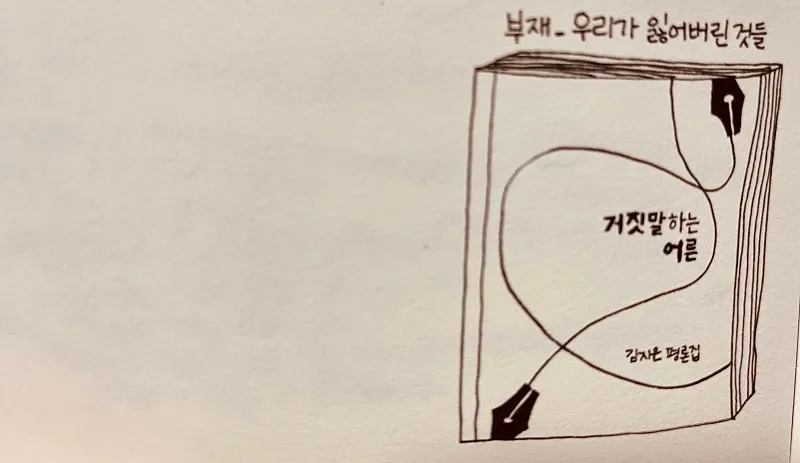 부재 - 우리가 잃어버린 것들
거짓말하는
어른
김지은 평론집